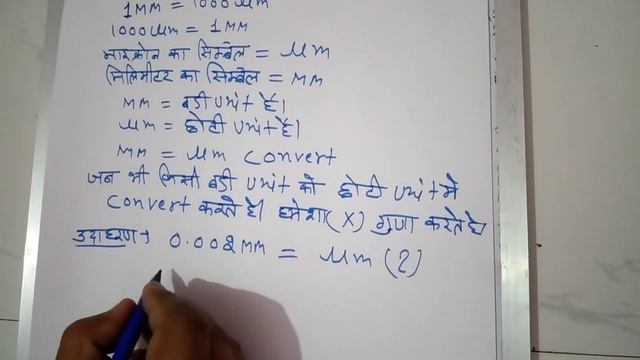 1MM = 1000 μm
1000 μm = 1MM
माइक्रोन का सिम्बोल = μm
मिलिमीटर का सिम्बोल = MM
MM = बडी unit है।
μm = छोटी unit है।
MM = μm convert
जब भी किसी बडी unit को छोटी unit मे
convert करते है। हमेशा (X) गुणा करते है।
उदाहरण→ 0.002MM = μm (?)